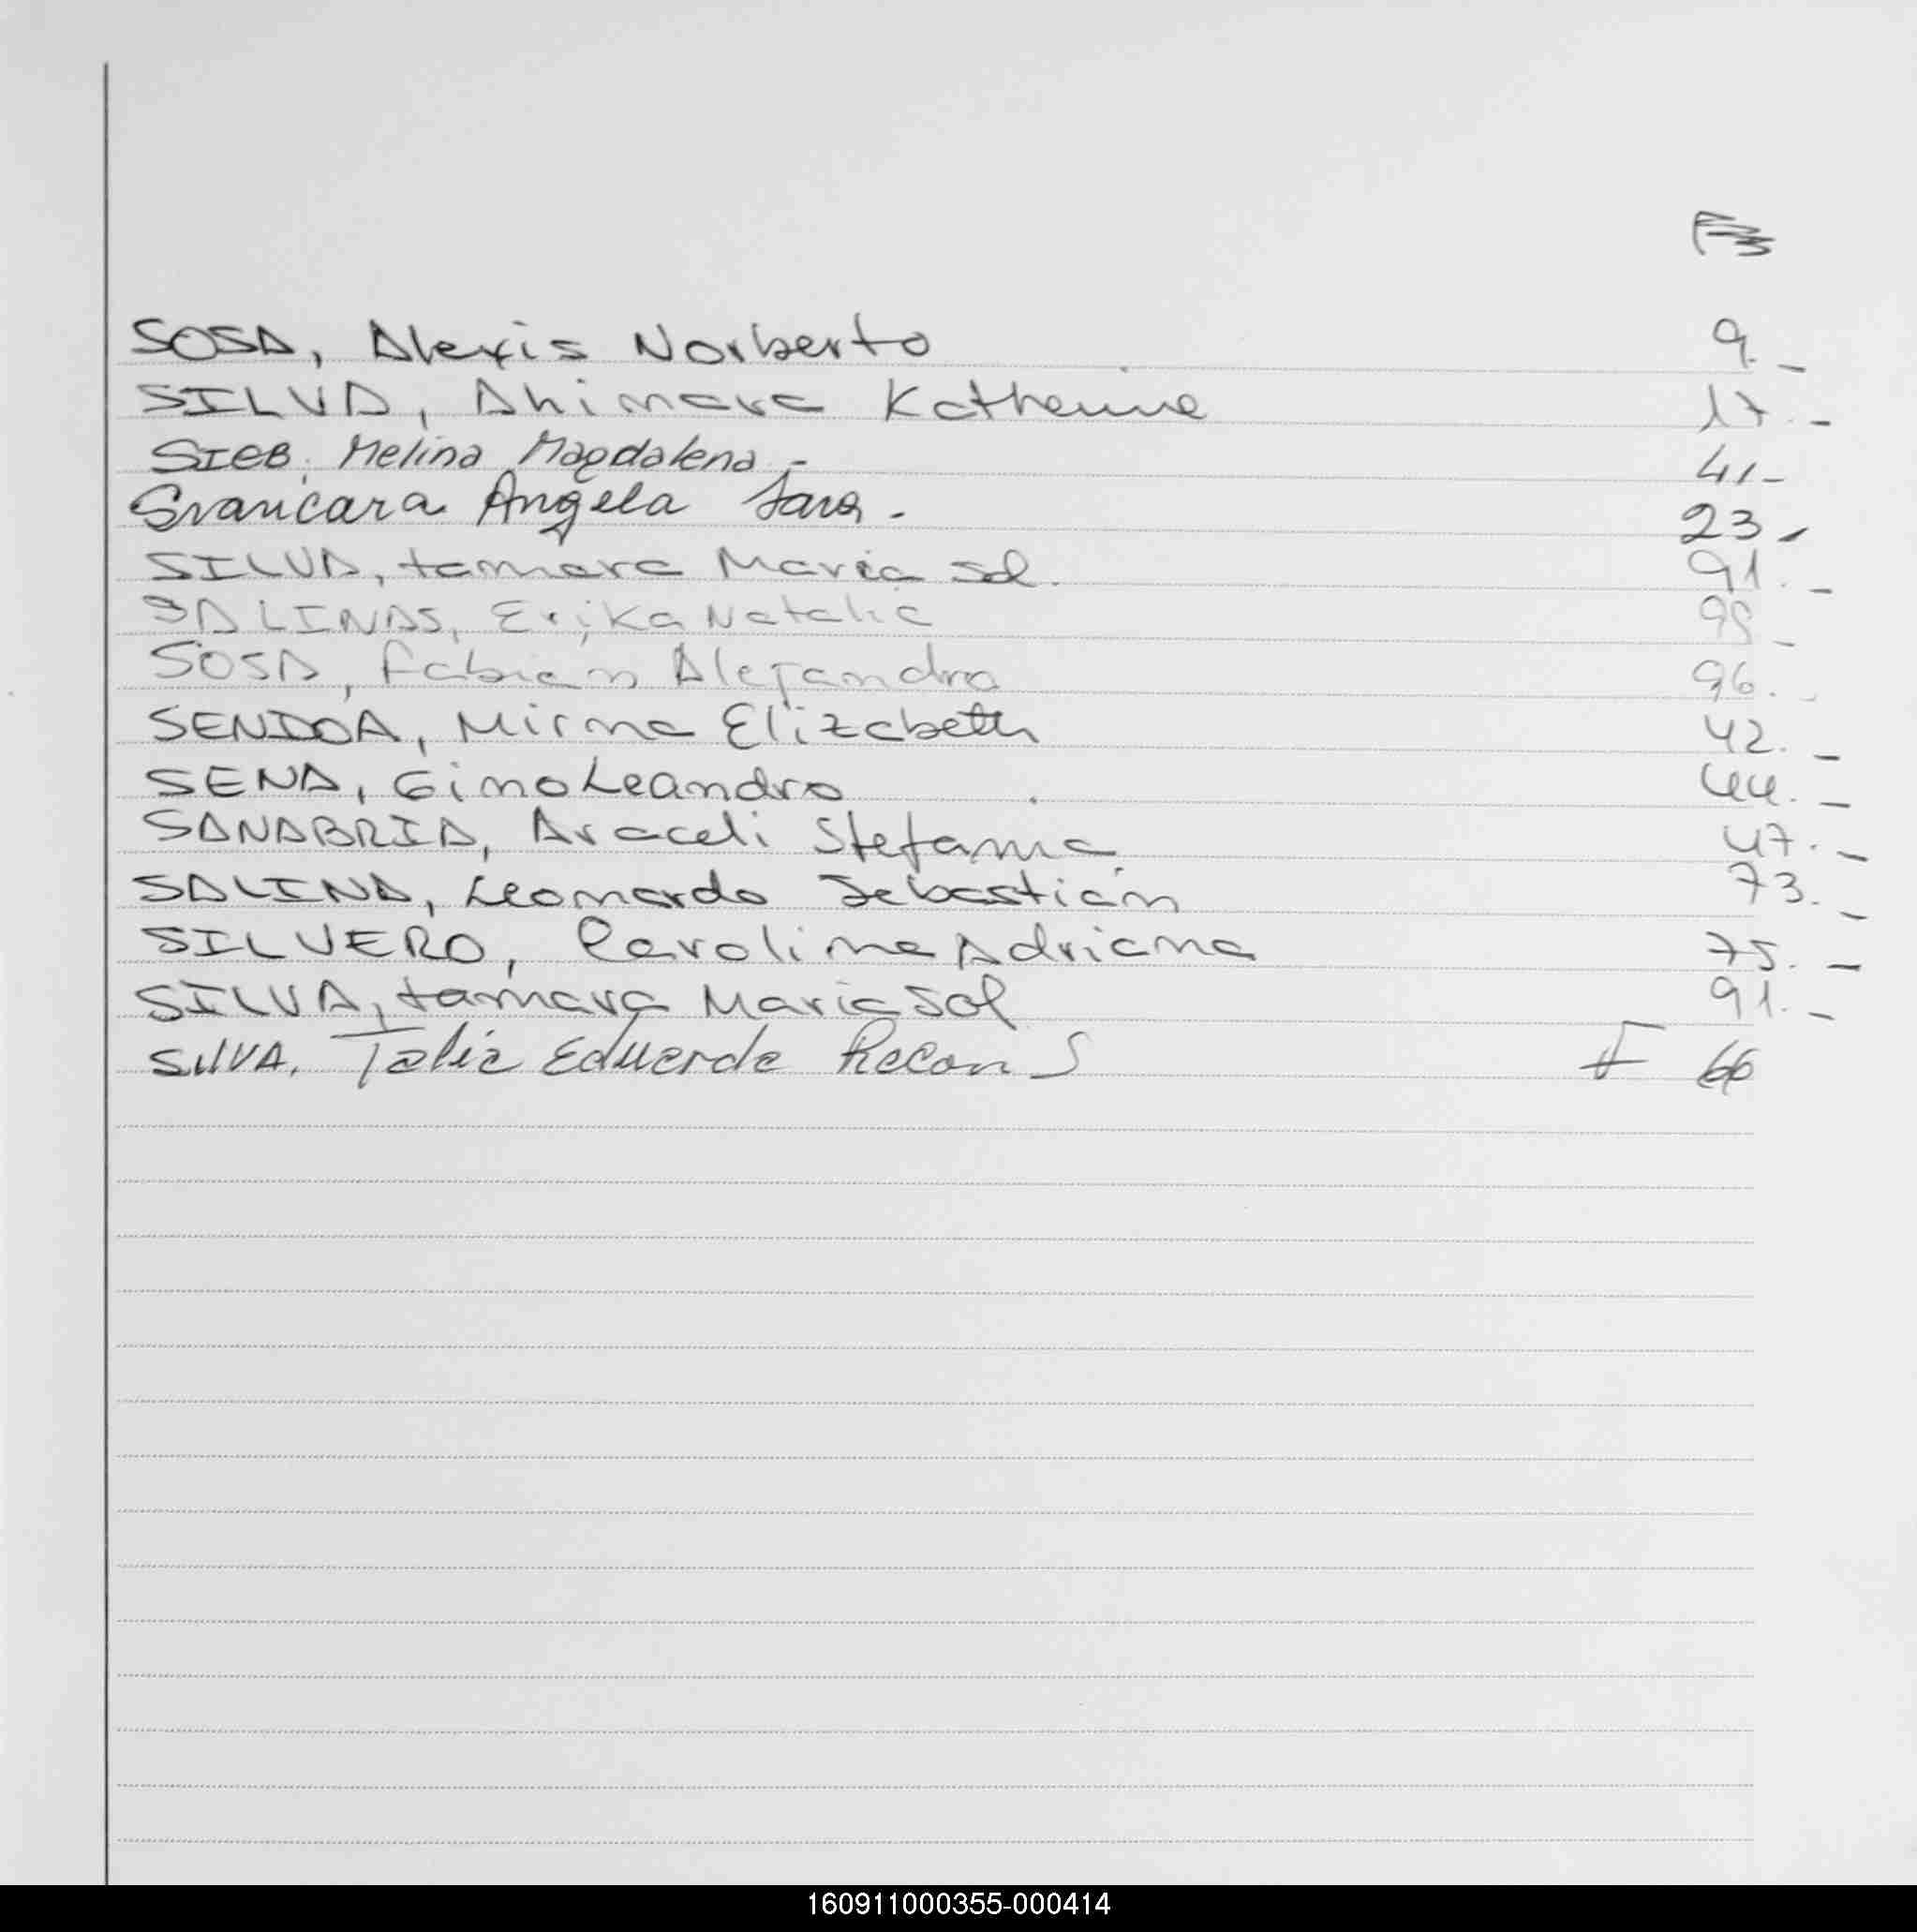 SOSA, Alexis Norberto 9.-
SILVA, Ahimara Katherine 17.-
SIEB, Melina Magdalena.- 41-
Svancara Angela Sara.- 23-
SILVA, tamara Maria Sol. 91.-
SALINAS, Erika Natalia 95-
SOSA, Fabián Alejandro 96.-
SENDOA, Mirna Elizabeth 42.-
SENA, Gino Leandro 44.-
SANABRIA, Araceli Stefania 47.-
SALINA, Leonardo Sebastián 73.-
SILVERO, Carolina Adriana 75.-
SILVA, tamara Maria Sol 91.-
SILVA, Talia Eduarda Recon S F 66
160911000355-000414